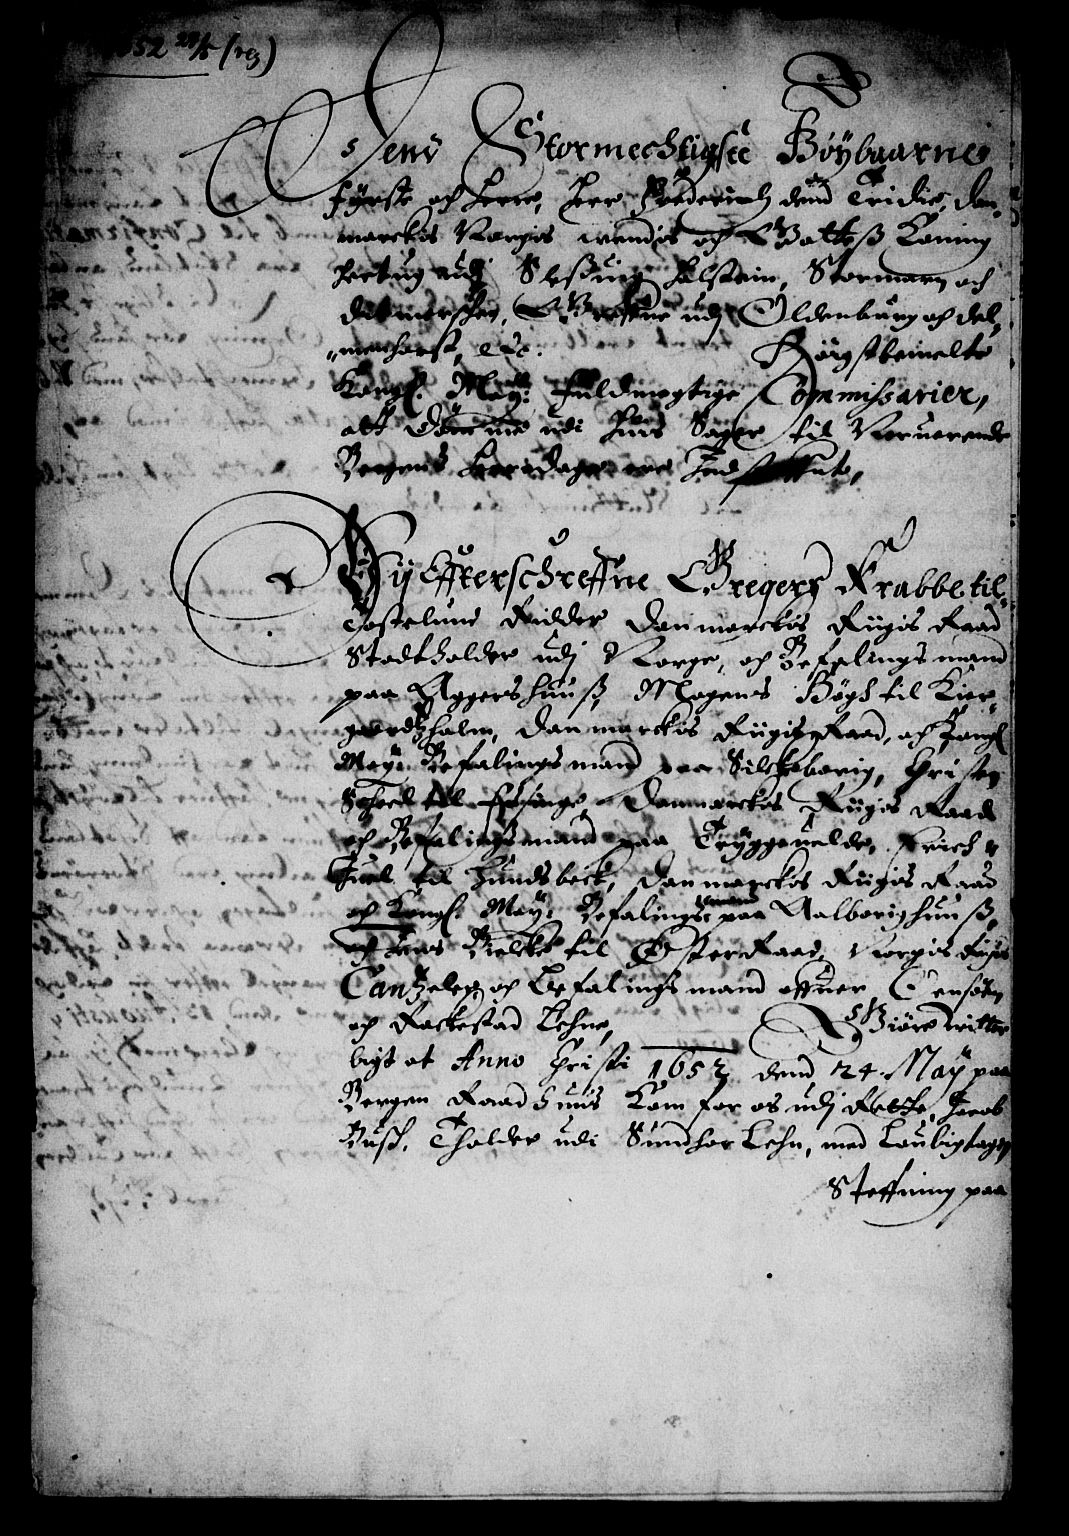 1652 24/5 (reg)
Dend Stormechtigste Höybaarne
Fyrste och Herre, Herr Frederich dend Tridie, Dan-
marckis Norgis Wendis och Gottes Koning
Hertug udj Sleßuig Holstein, Stormarn och
Ditmersken, Greffue udj Oldenburg och Del-
menhorst, etc. Höigstbemelte
Kongl. May: Fuldmegtige Commissarier,
att Dömme udi huis Sager til Neruerende
Bergens Herredage ere Indsteffnte,
Vij Effterschreffne Gregers Krabbe til
Tostelund Ridder Danmarckis Riigis Raad
Stadtholder udj Norge, och Befalingsmand
paa Aggershuuß, Mogens Høyh til Kier-
gaardtzholm, Danmarckis Riigis Raad, och Kongl
May: Befalingsmand paa Silckeborig, Christen
Scheel til Fusinge, Danmarckis Riigis Raad
och Befalingsmand paa Trÿggeuelde, Erich
Juel til Hundsbeck, Danmarckis Riigis Raad
och Kongl. May: Befalingsmand paa Aalborighuuß,
och Jens Bielcke til Østeraad, Norgis Riigis
Cantzeler och Befalingsmand offuer
och Rackestad Lehne, Giöre witter-
ligt at Anno Christi 1652 dend 24 May paa
Bergen Raadhuus Kom for os udj Rette, Jacob
Busch, Tholder udi Sundhor Lehn, med Laubigtagen
Steffning paa